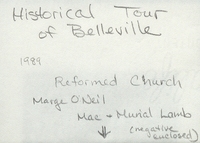 Historical Tour
of Belleville
1989
Reformed Church
Marge O'Neil
Mae + Murial Lamb
(negative
enclosed)